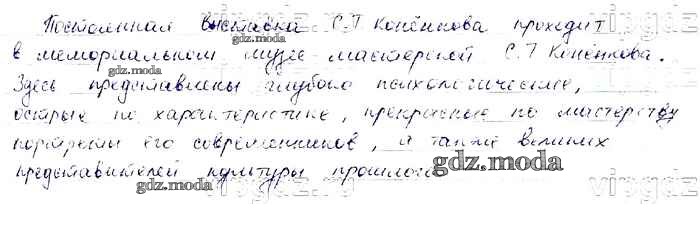 Постоянная выставка С.Т Конёнкова проходит
в мемориальном музее мастерской С.Т Конёнкова.
Здесь представлены глубоко психологические,
острые по характеристике, прекрасные по мастерству
портреты его современников, а также великих
представителей культуры прошлого
gdz.moda
gdz.moda
gdz.moda
gdz.moda
gdz.moda
vipgdz.ru
vipgdz